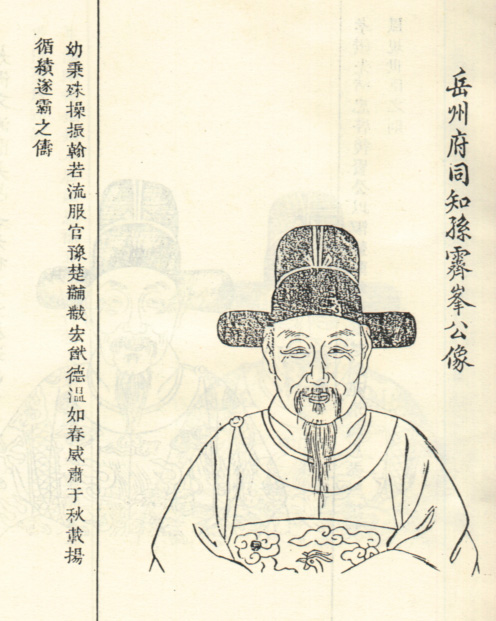 岳州府同知孫霽峯公像
幼秉殊操振翰若流服官豫楚黼黻宏猷德温如春威肅于秋載揚
循績遂霸之儔